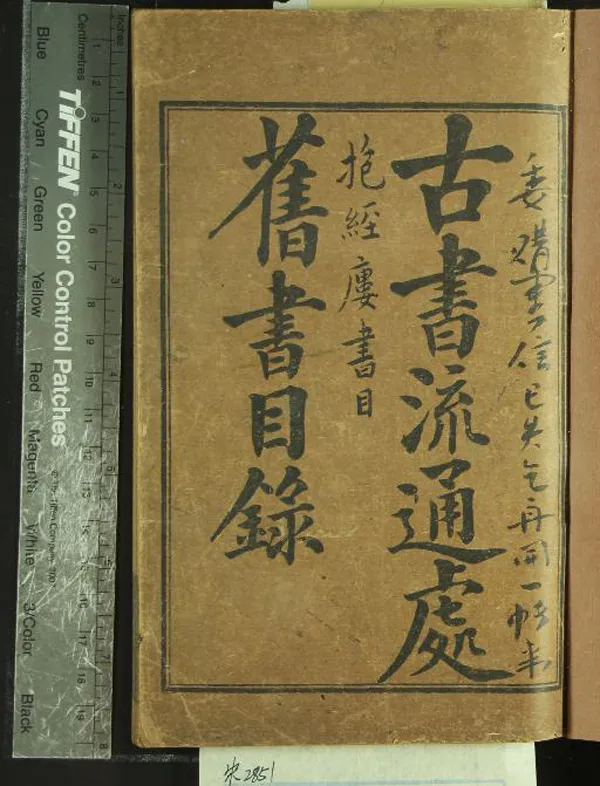 委購信已失乞再開一帳來
古書流通處
抱經廔書目
舊書目錄
Inches
1 2 3 4 5 6 7 8
Centimetres
1 2 3 4 5 6 7 8 9 10 11 12 13 14 15 16 17 18 19
TIFFEN® Color Control Patches
© The Tiffen Company, 2007
Blue Cyan Green Yellow Red Magenta White 3/Color Black
2851